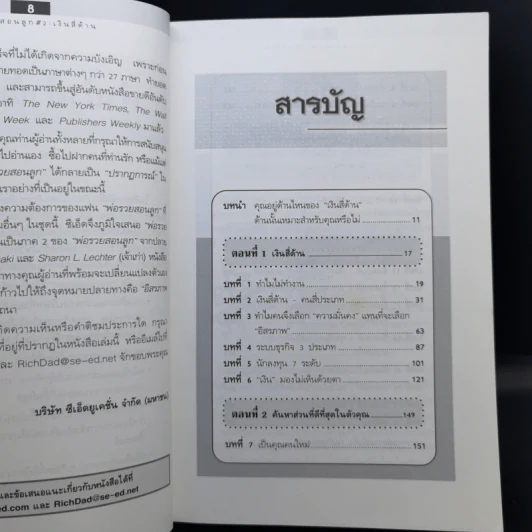 8
สอนลูก #2 : เงินสี่ด้าน
จที่ไม่ได้เกิดจากความบังเอิญ เพราะก่อน
ายทอดเป็นภาษาต่างๆ กว่า 27 ภาษา ทำยอด
และสามารถขึ้นสู่อันดับหนังสือขายดีอันดับ
าทิ The New York Times, The Wall
Week และ Publishers Weekly มาแล้ว
คุณท่านผู้อ่านทั้งหลายที่กรุณาให้การสนับสนุน
ไปอ่านเอง ซื้อไปฝากคนที่ท่านรัก หรือแม้แต่
วยสอนลูก" ได้กลายเป็น "ปรากฏการณ์" ใน
ราอย่างที่เป็นอยู่ในขณะนี้
งความต้องการของแฟน "พ่อรวยสอนลูก" ที่
อื่นๆ ในชุดนี้ ซีเอ็ดจึงภูมิใจเสนอ "พ่อรวย
นเป็นภาค 2 ของ "พ่อรวยสอนลูก" จากปลาย
aki และ Sharon L. Lechter (เจ้าเก่า) หนังสือ
าทางคุณผู้อ่านที่พร้อมจะเปลี่ยนแปลงตัวเอง
ก้าวไปให้ถึงจุดหมายปลายทางคือ "อิสรภาพ
ถนา
กิดความเห็นหรือคำติชมประการใด กรุณา
ที่อยู่ที่ปรากฏในหนังสือเล่มนี้ หรืออีเมล์ไปที่
และ RichDad@se-ed.net จักขอบพระคุณ
บริษัท ซีเอ็ดยูเคชั่น จำกัด (มหาชน)
และข้อเสนอแนะเกี่ยวกับหนังสือได้ที่
ed.com และ RichDad@se-ed.net
สารบัญ
บทนำ คุณอยู่ด้านไหนของ "เงินสี่ด้าน"
ด้านนั้นเหมาะสำหรับคุณหรือไม่ 11
ตอนที่ 1 เงินสี่ด้าน 17
บทที่ 1 ทำไมไม่ทำงาน 19
บทที่ 2 เงินสี่ด้าน - คนสี่ประเภท 31
บทที่ 3 ทำไมคนจึงเลือก "ความมั่นคง" แทนที่จะเลือก
"อิสรภาพ" 63
บทที่ 4 ระบบธุรกิจ 3 ประเภท 87
บทที่ 5 นักลงทุน 7 ระดับ 101
บทที่ 6 "เงิน" มองไม่เห็นด้วยตา 121
ตอนที่ 2 ค้นหาส่วนที่ดีที่สุดในตัวคุณ 149
บทที่ 7 เป็นคุณคนใหม่ 151